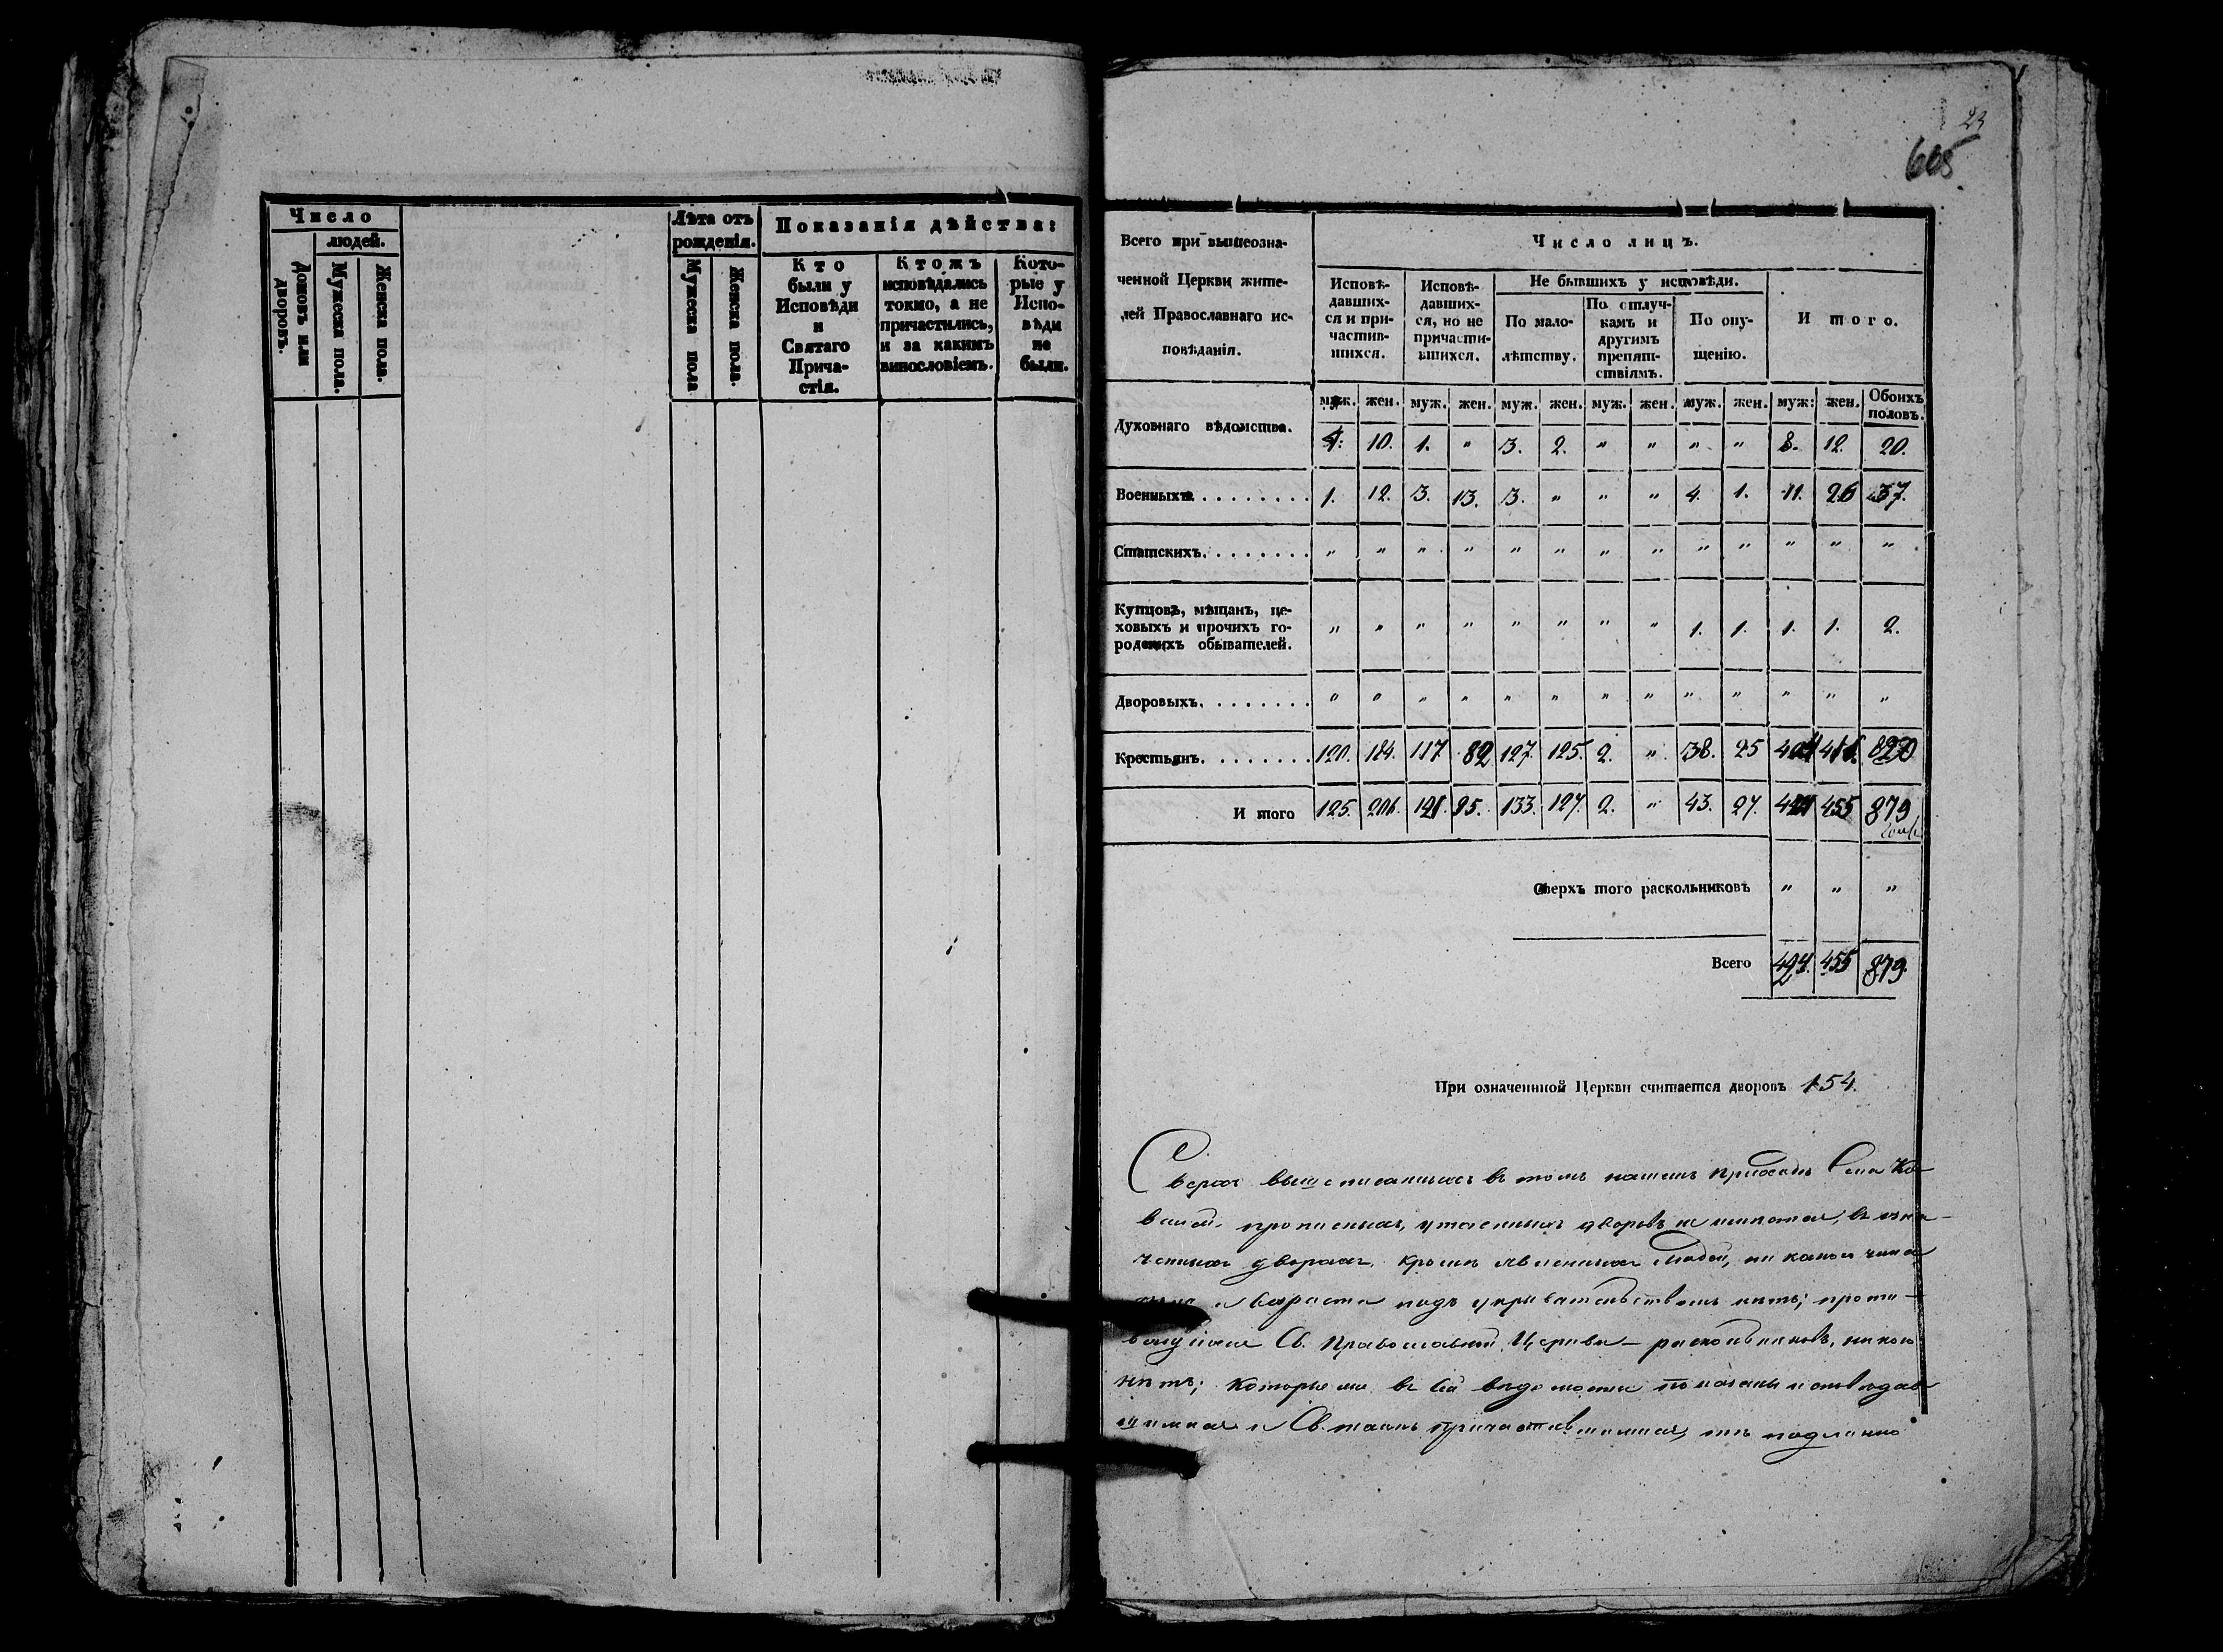 Число
людей.
Домовъ или дворовъ.
Мужеска пола.
Женска пола.
Лѣта отъ
рожденія.
Мужеска пола
Женска пола.
Показанія дѣйства:
Кто
были у
Исповѣди
и
Святаго
Прича-
стія.
Ктожъ
исповѣдались
токмо, а не
причастились,
и за какимъ
винословіемъ.
Кото-
рые у
Испо-
вѣди
не
были.
23
605
Всего при вышеозна-
ченной Церкви жите-
лей Православнаго ис-
повѣданія.
Число лицъ.
Исповѣ-
давших-
ся и при-
частив-
шихся.
Исповѣ-
давших-
ся, но не
причасти-
вшихся.
Не бывшихъ у исповѣди.
По мало-
лѣтству.
По отлуч-
камъ и
другимъ
препят-
ствіямъ.
По опу-
щенію.
Итого.
муж. жен. муж. жен. муж. жен. муж. жен. муж. жен. муж: жен. Обоихъ половъ.
Духовнаго вѣдомства. 4. 10. 1. „ 3. 2. „ „ „ „ 8. 12. 20.
Военныхъ........ 1. 12. 3. 13. 3. „ „ „ 4. 1. 11. 26 37.
Статскихъ........ „ „ „ „ „ „ „ „ „ „ „ „ „
Купцовъ, мѣщанъ, це-
ховыхъ и прочихъ го-
родскихъ обывателей. „ „ „ „ „ „ „ „ 1. 1. 1. 1. 2.
Дворовыхъ........ „ „ „ „ „ „ „ „ „ „ „ „ „
Крестьянъ........ 120. 184. 117 82 127. 125. 2. „ 38. 25 404 416. 820
И того 125. 206. 121. 95. 133. 127. 2. „ 43. 27. 424 455 879
Сверхъ того раскольниковъ „ „ „
Всего 424. 455 879.
При означеннной Церкви считается дворовъ 154.
Сверхъ вышеписанныхъ въ томъ нашемъ приходѣ Села
прописныхъ, утаенныхъ дворовъ не имѣется, въ озна-
ченныхъ дворахъ, кромѣ явленныхъ людей, ни какого чина
и возраста подъ укрывательствомъ нѣтъ; проти-
Св. Православной Церкви – раскольниковъ, никого
нѣтъ; которые же въ сей вѣдомости показаны исповѣдав-
шимися и Св. таинъ причастившимися, тѣ подлинно